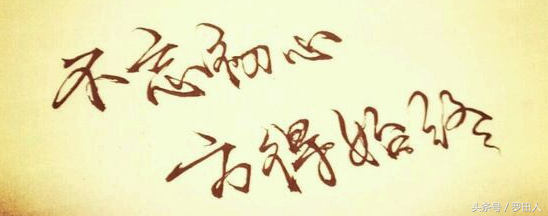 不忘初心
方得始终
头条号／罗田人